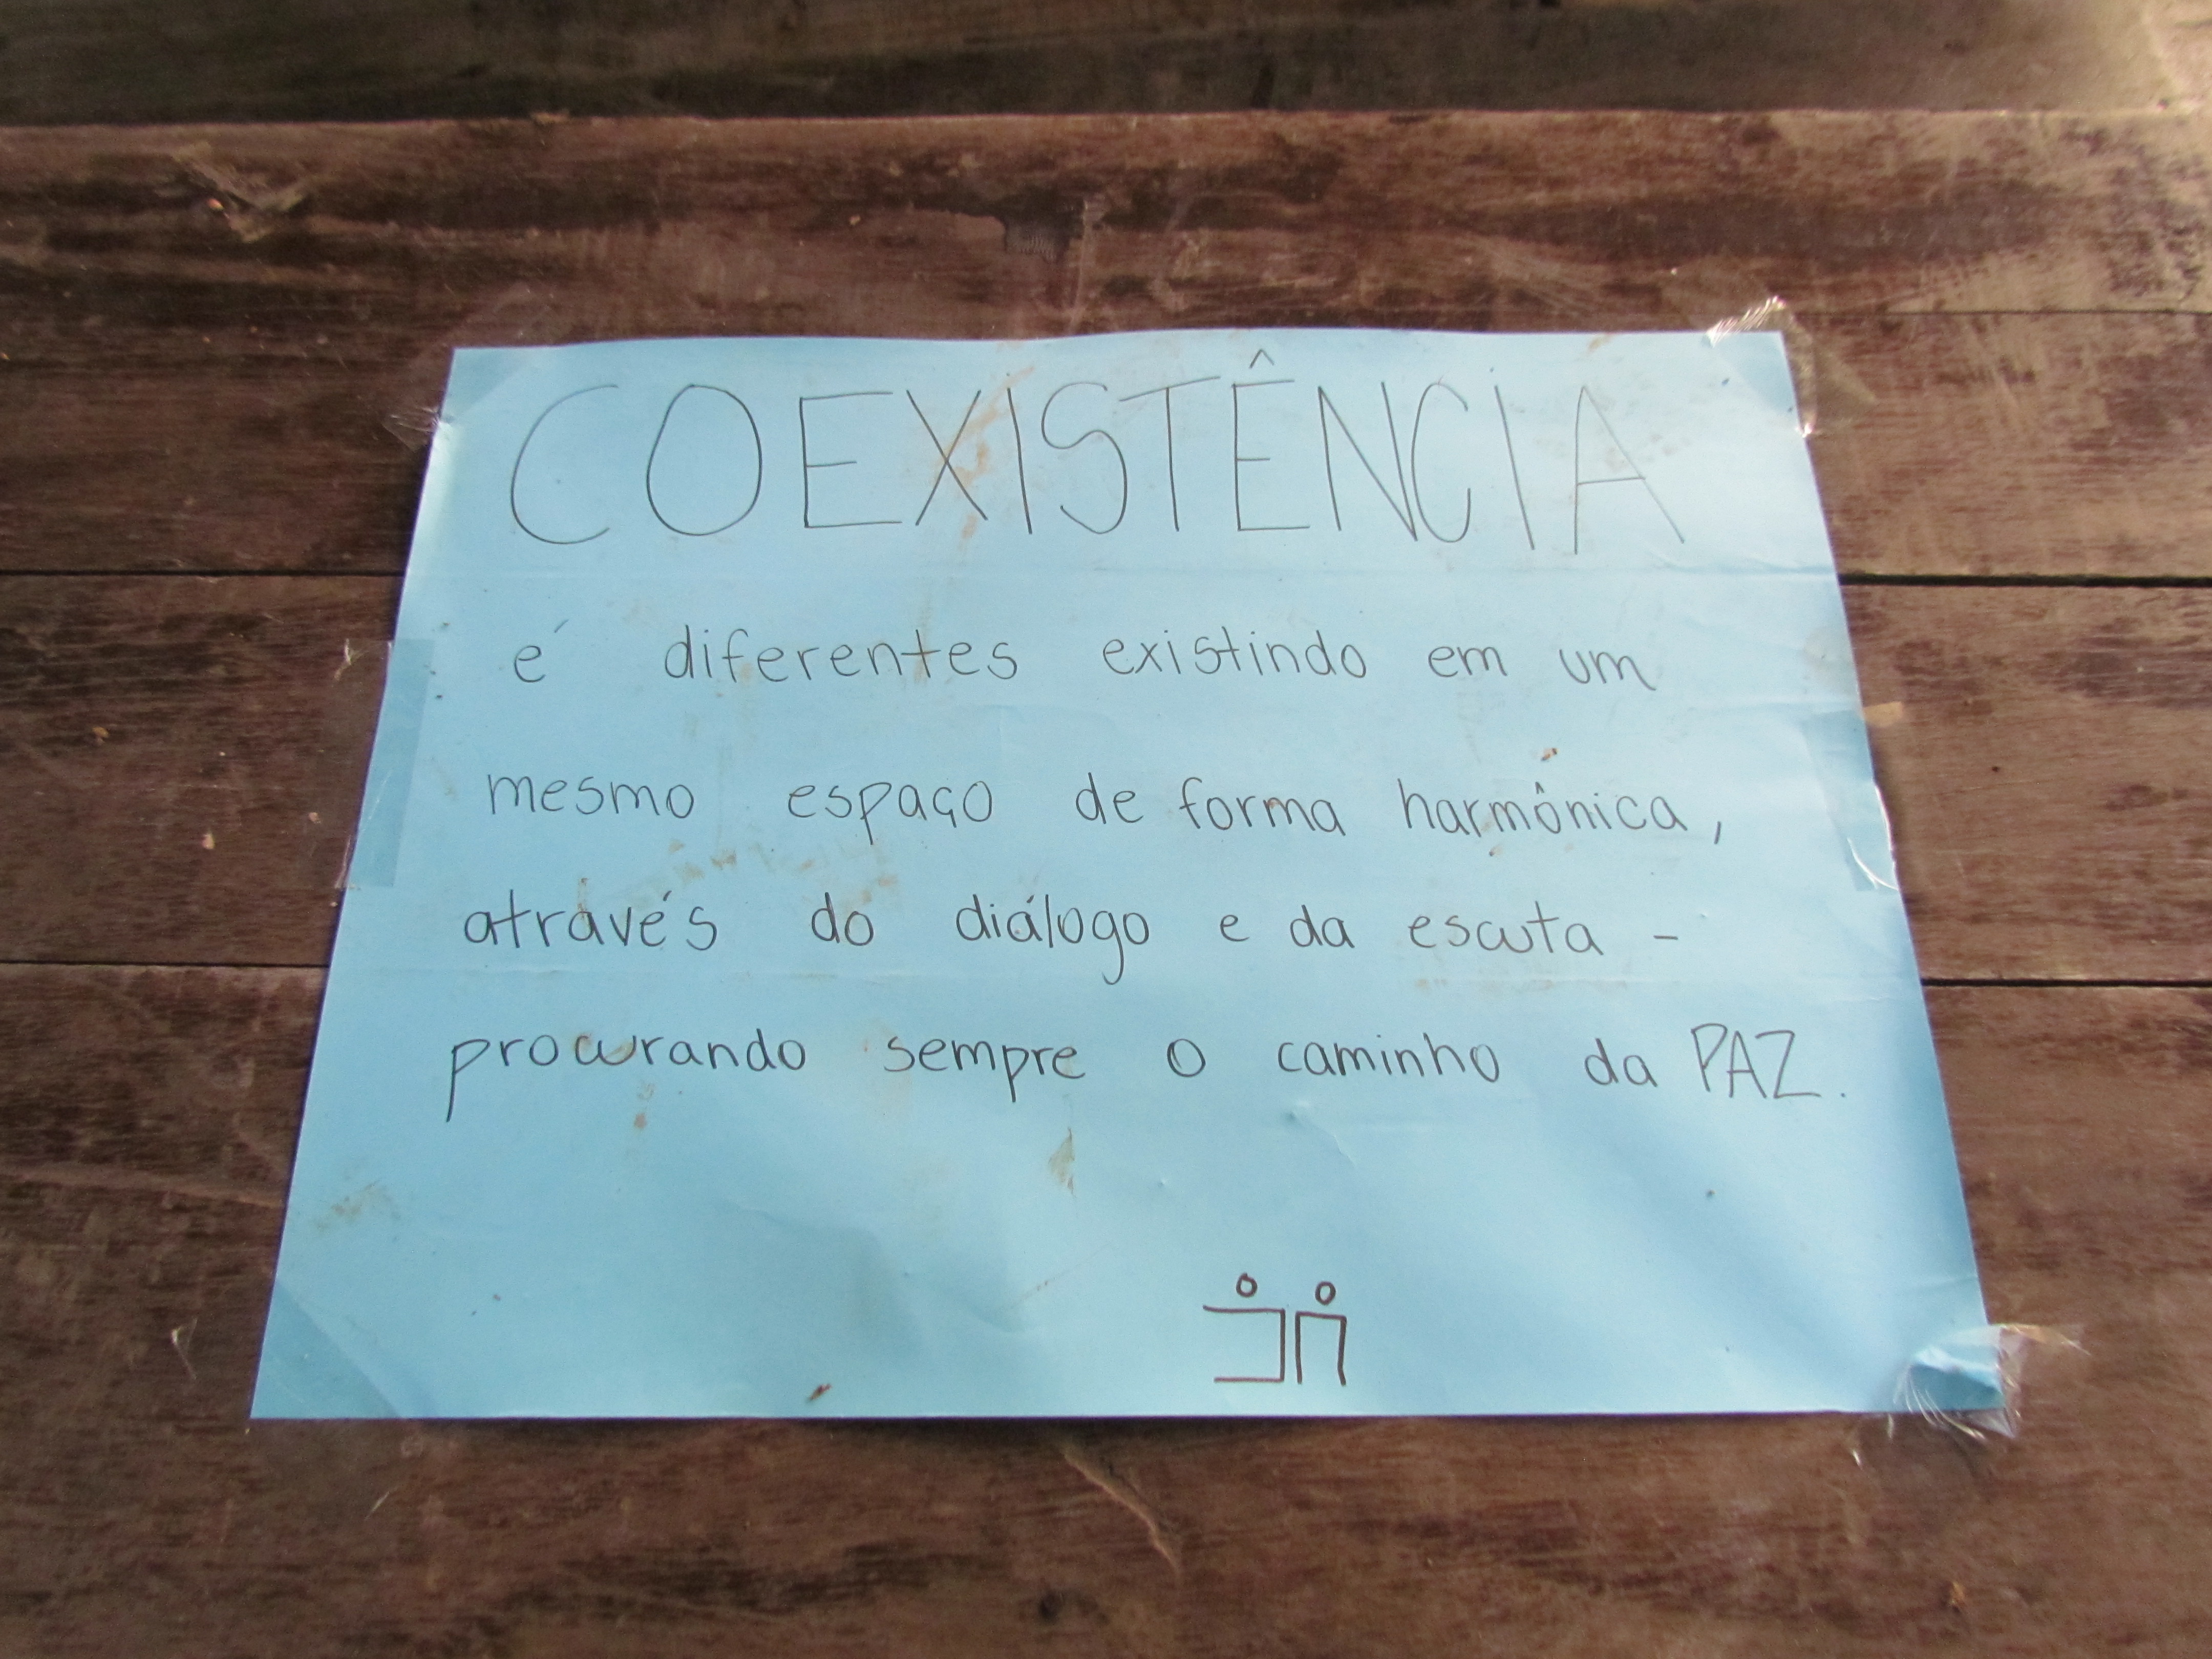 COEXISTÊNCIA
é diferentes existindo em um
mesmo espaço de forma harmônica,
através do diálogo e da escuta -
procurando sempre o caminho da PAZ.